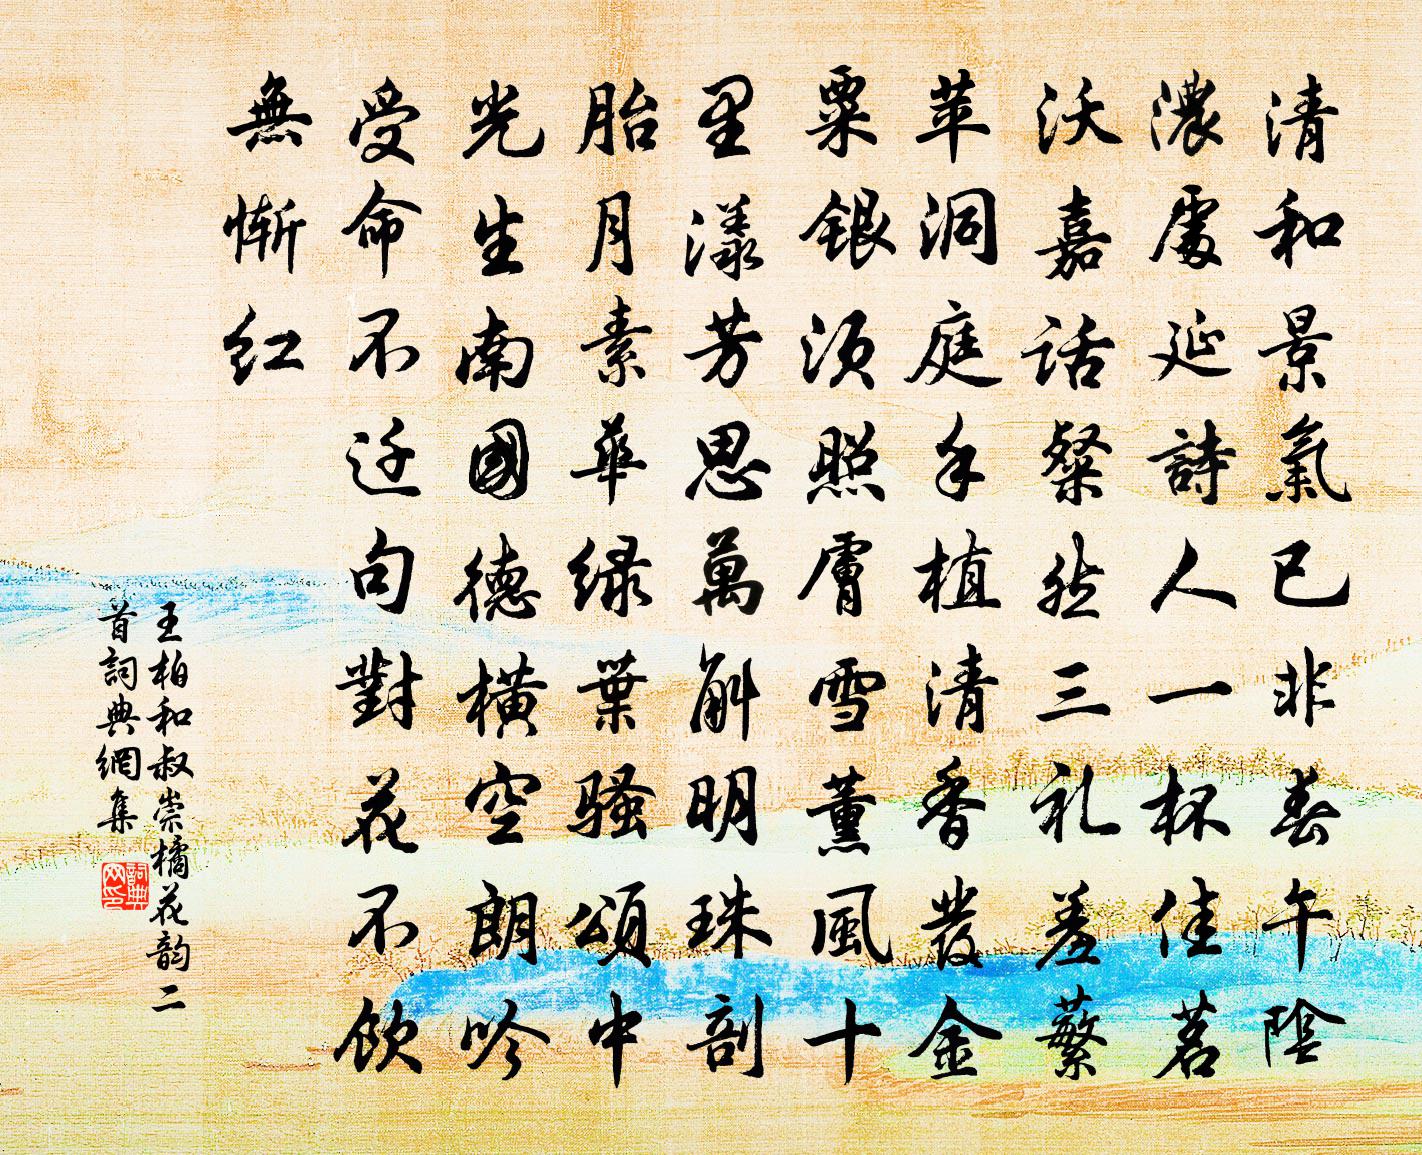 清和景氣已非春午陰
濃處延詩人一杯佳茗
沃嘉話粲然三礼羞蘩
苹洞庭手植清香發金
粟銀須照膚雪薰風十
里漾芳思萬斛明珠剖
胎月素華绿葉骚頌中
光生南國德橫空朗吟
受命不迁句對花不飲
無慚红
王柏和叔崇橘花韵二
首詞典網集
詞典网印